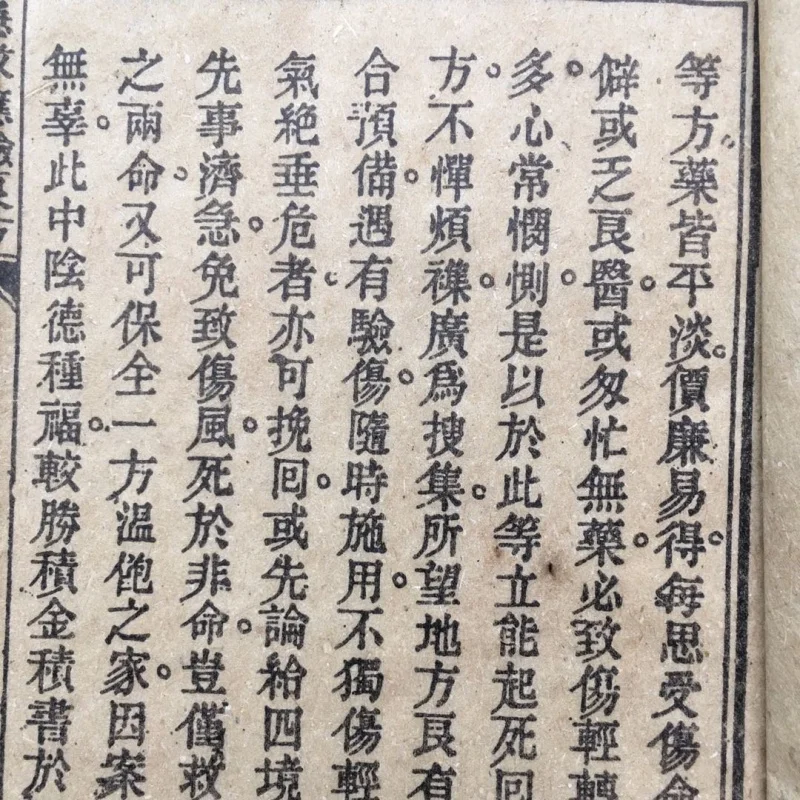 等方藥皆平淡。價廉易得。每思受傷
僻或乏良醫。或匆忙無藥。必致傷輕轉
多。心常憫惻。是以於此等立能起死回
方。不憚煩襍。廣為搜集。所望地方良有
合預備。遇有驗傷。隨時施用。不獨傷輕
氣絶垂危者。亦可挽回。或先論給四境
先事濟急。免致傷風。死於非命。豈僅救
之兩命。又可保全一方溫飽之家。因案
無辜。此中陰德種福。較勝積金積書於